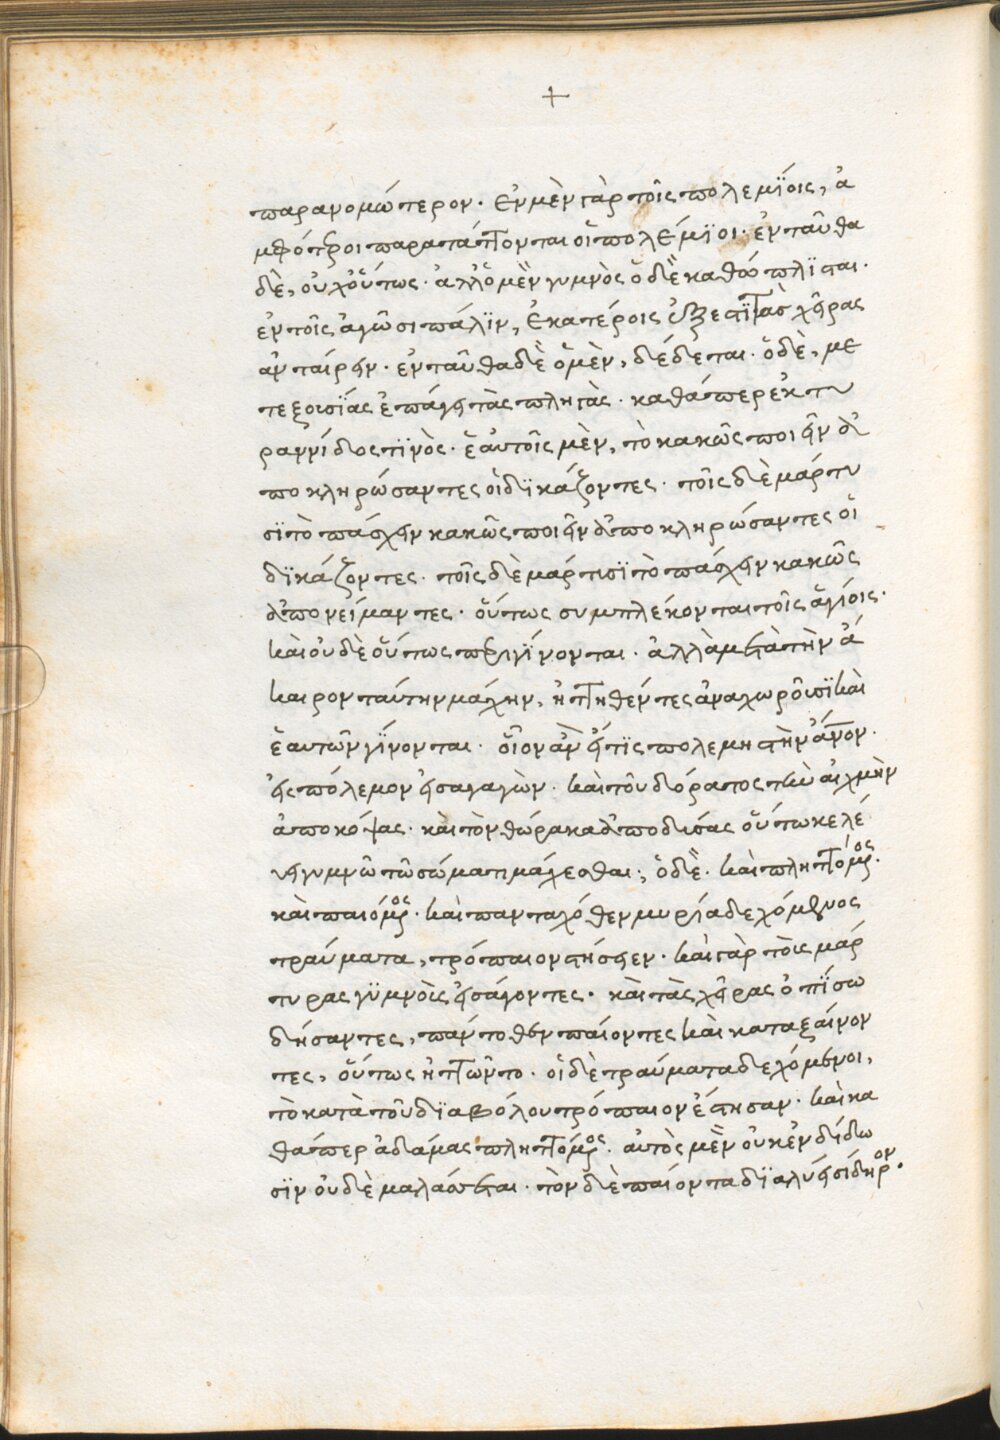 +
παρανομώτερον · ἐν μὲν γὰρ τοῖς πολεμΐοις, ἀ
μφότεροι παρατάττονται οἱ πολέμϊοι · ἐνταῦθα
δὲ, οὐχ οὕτως · ἀλλ ὁ μὲν γυμνὸς ὁ δὲ καθώπλϊσται ·
ἐν τοῖς ἀγῶσι πάλϊν, ἑκατέροις ἔξεστϊ τὰς χεῖρας
ἀνταίρειν · ἐνταῦθα δὲ ὁ μὲν, δέδεται · ὁ δὲ, με
τ εξουσϊας ἐπάγει τὰς πληγὰς · καθάπερ ἐκ τυ
ραννίδος τϊνὸς · ἑαυτοῖς μὲν, τὸ κακῶς ποιεῖν ἀ
ποκληρώσαντες οἱ δϊκάζοντες · τοῖς δὲ μάρτυ
σϊ τὸ πάσχειν κακῶς ποιεῖν ἀποκληρώσαντες οἱ
δϊκάζοντες · τοῖς δὲ μάρτυσϊ τὸ πάσχειν κακῶς
ἀπονείμαντες · οὕτως συμπλέκονται τοῖς ἁγίοις ·
καὶ οὐδὲ οὕτως περιγΐνονται · ἀλλὰ μετὰ τὴν ἄ
καιρον ταύτην μάχην, ἡττηθέντες ἀναχωροῦσϊ καὶ
ἑαυτῶν γΐνονται · οἷον ἂν εἴ τϊς πολεμηστὴν ἄνον ·
εἰς πόλεμον εἰσαγαγὼν · καὶ τοῦ δόρατος τὴν αἰχμὴν
ἀποκόψας · καὶ τὸν θώρακα ἀποδυσας οὕτω κελέ
υει γυμνῶ τῶ σώματι μάχεσθαι ·, ὁ δὲ · καὶ πληττόμενος ·
καὶ παιόμενος · καὶ πανταχόθεν μυρία δεχόμενος
τραύματα, τρόπαιον στήσειεν · καὶ γὰρ τοὺς μάρ
τυρας γϋμνοὺς εἰσάγοντες · καὶ τὰς χεῖρας ὀπΐσω
δήσαντες, πάντοθεν παίοντες καὶ καταξαίνον
τες, οὕτως ἡττῶντο · οἱ δὲ τραύματα δεχόμενοι,
τὸ κατὰ τοῦ δϊαβόλου τρόπαιον ἔστησαν · καὶ κα
θάπερ ἀδάμας πληττόμενος · αὐτὸς μὲν οὐκ ἐνδίδω
σϊν οὐδὲ μαλάσσεται · τὸν δὲ παίοντα δϊαλύει σίδηρον ·